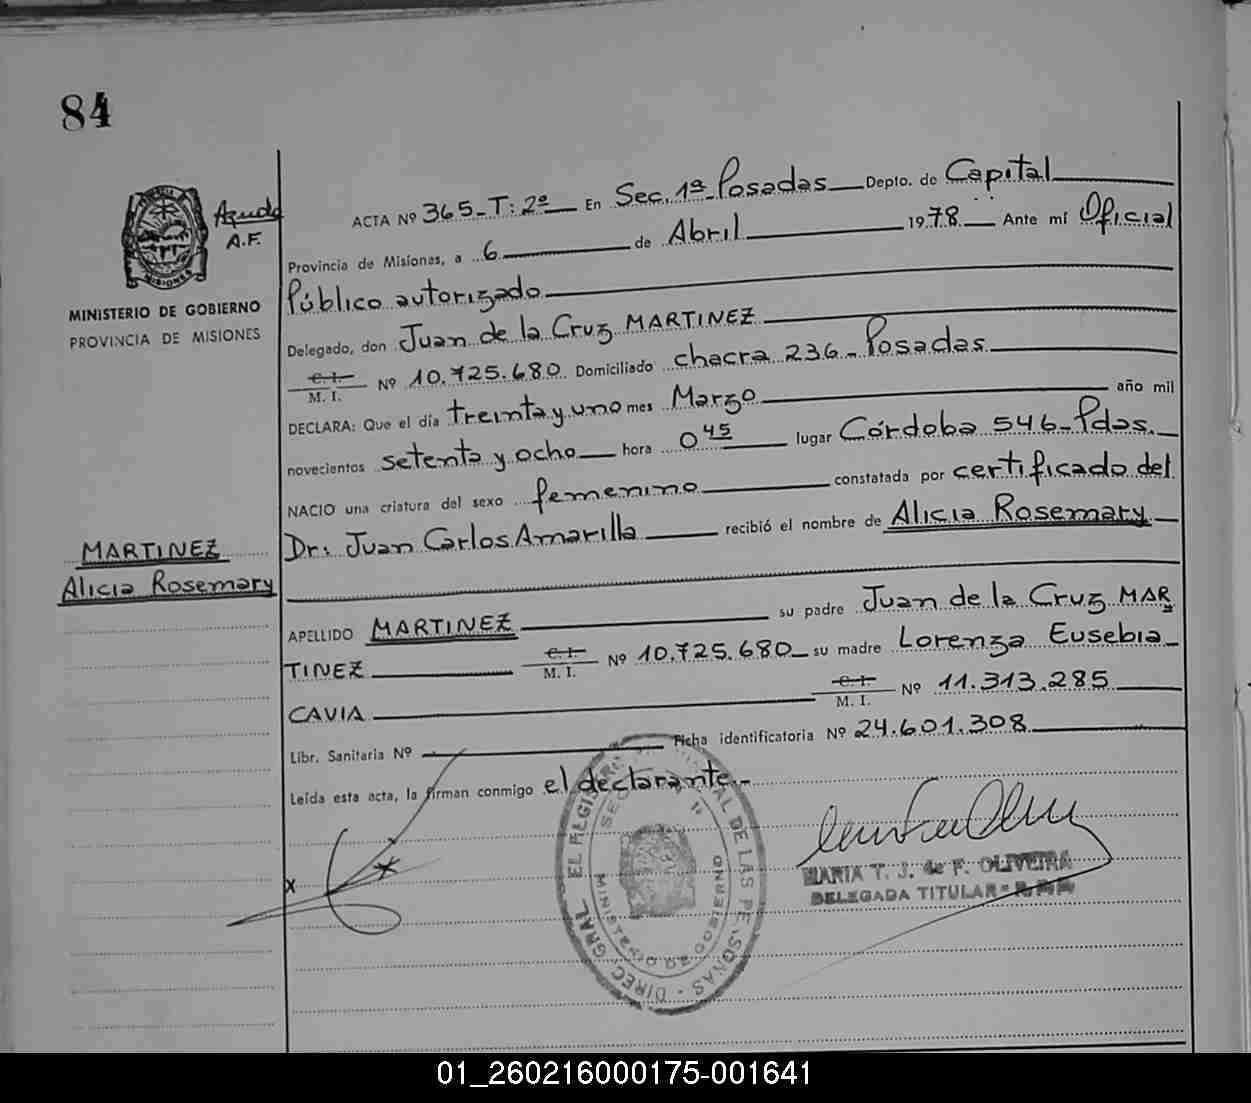 84
Aguda
A.F.
MINISTERIO DE GOBIERNO
PROVINCIA DE MISIONES
ACTA Nº 365-T: 2º En Sec. 1ª Posadas Depto. de Capital
Provincia de Misiones, a 6 de Abril 1978 Ante mí Oficial
Público autorizado
Delegado, don Juan de la Cruz MARTINEZ
C.I.
M. I. Nº 10.725.680 Domiciliado chacra 236-Posadas
DECLARA: Que el día treinta y uno mes Marzo año mil
novecientos setenta y ocho hora 0 45 lugar Córdoba 546-Pdas.
NACIO una criatura del sexo femenino constatada por certificado del
Dr: Juan Carlos Amarilla recibió el nombre de Alicia Rosemary
MARTINEZ
Alicia Rosemary
APELLIDO MARTINEZ su padre Juan de la Cruz MAR
TINEZ C.I. M. I. Nº 10.725.680 su madre Lorenza Eusebia
CAVIA C.I. M. I. Nº 11.313.285
Libr. Sanitaria Nº Ficha identificatoria Nº 24.601.308
Leída esta acta, la firman conmigo el declarante.-
MARIA T. J. de F. OLIVEIRA
DELEGADA TITULAR
DIREC. GRAL. EL REGISTRO DE LAS PERSONAS
MINISTERIO DE GOBIERNO
01_260216000175-001641